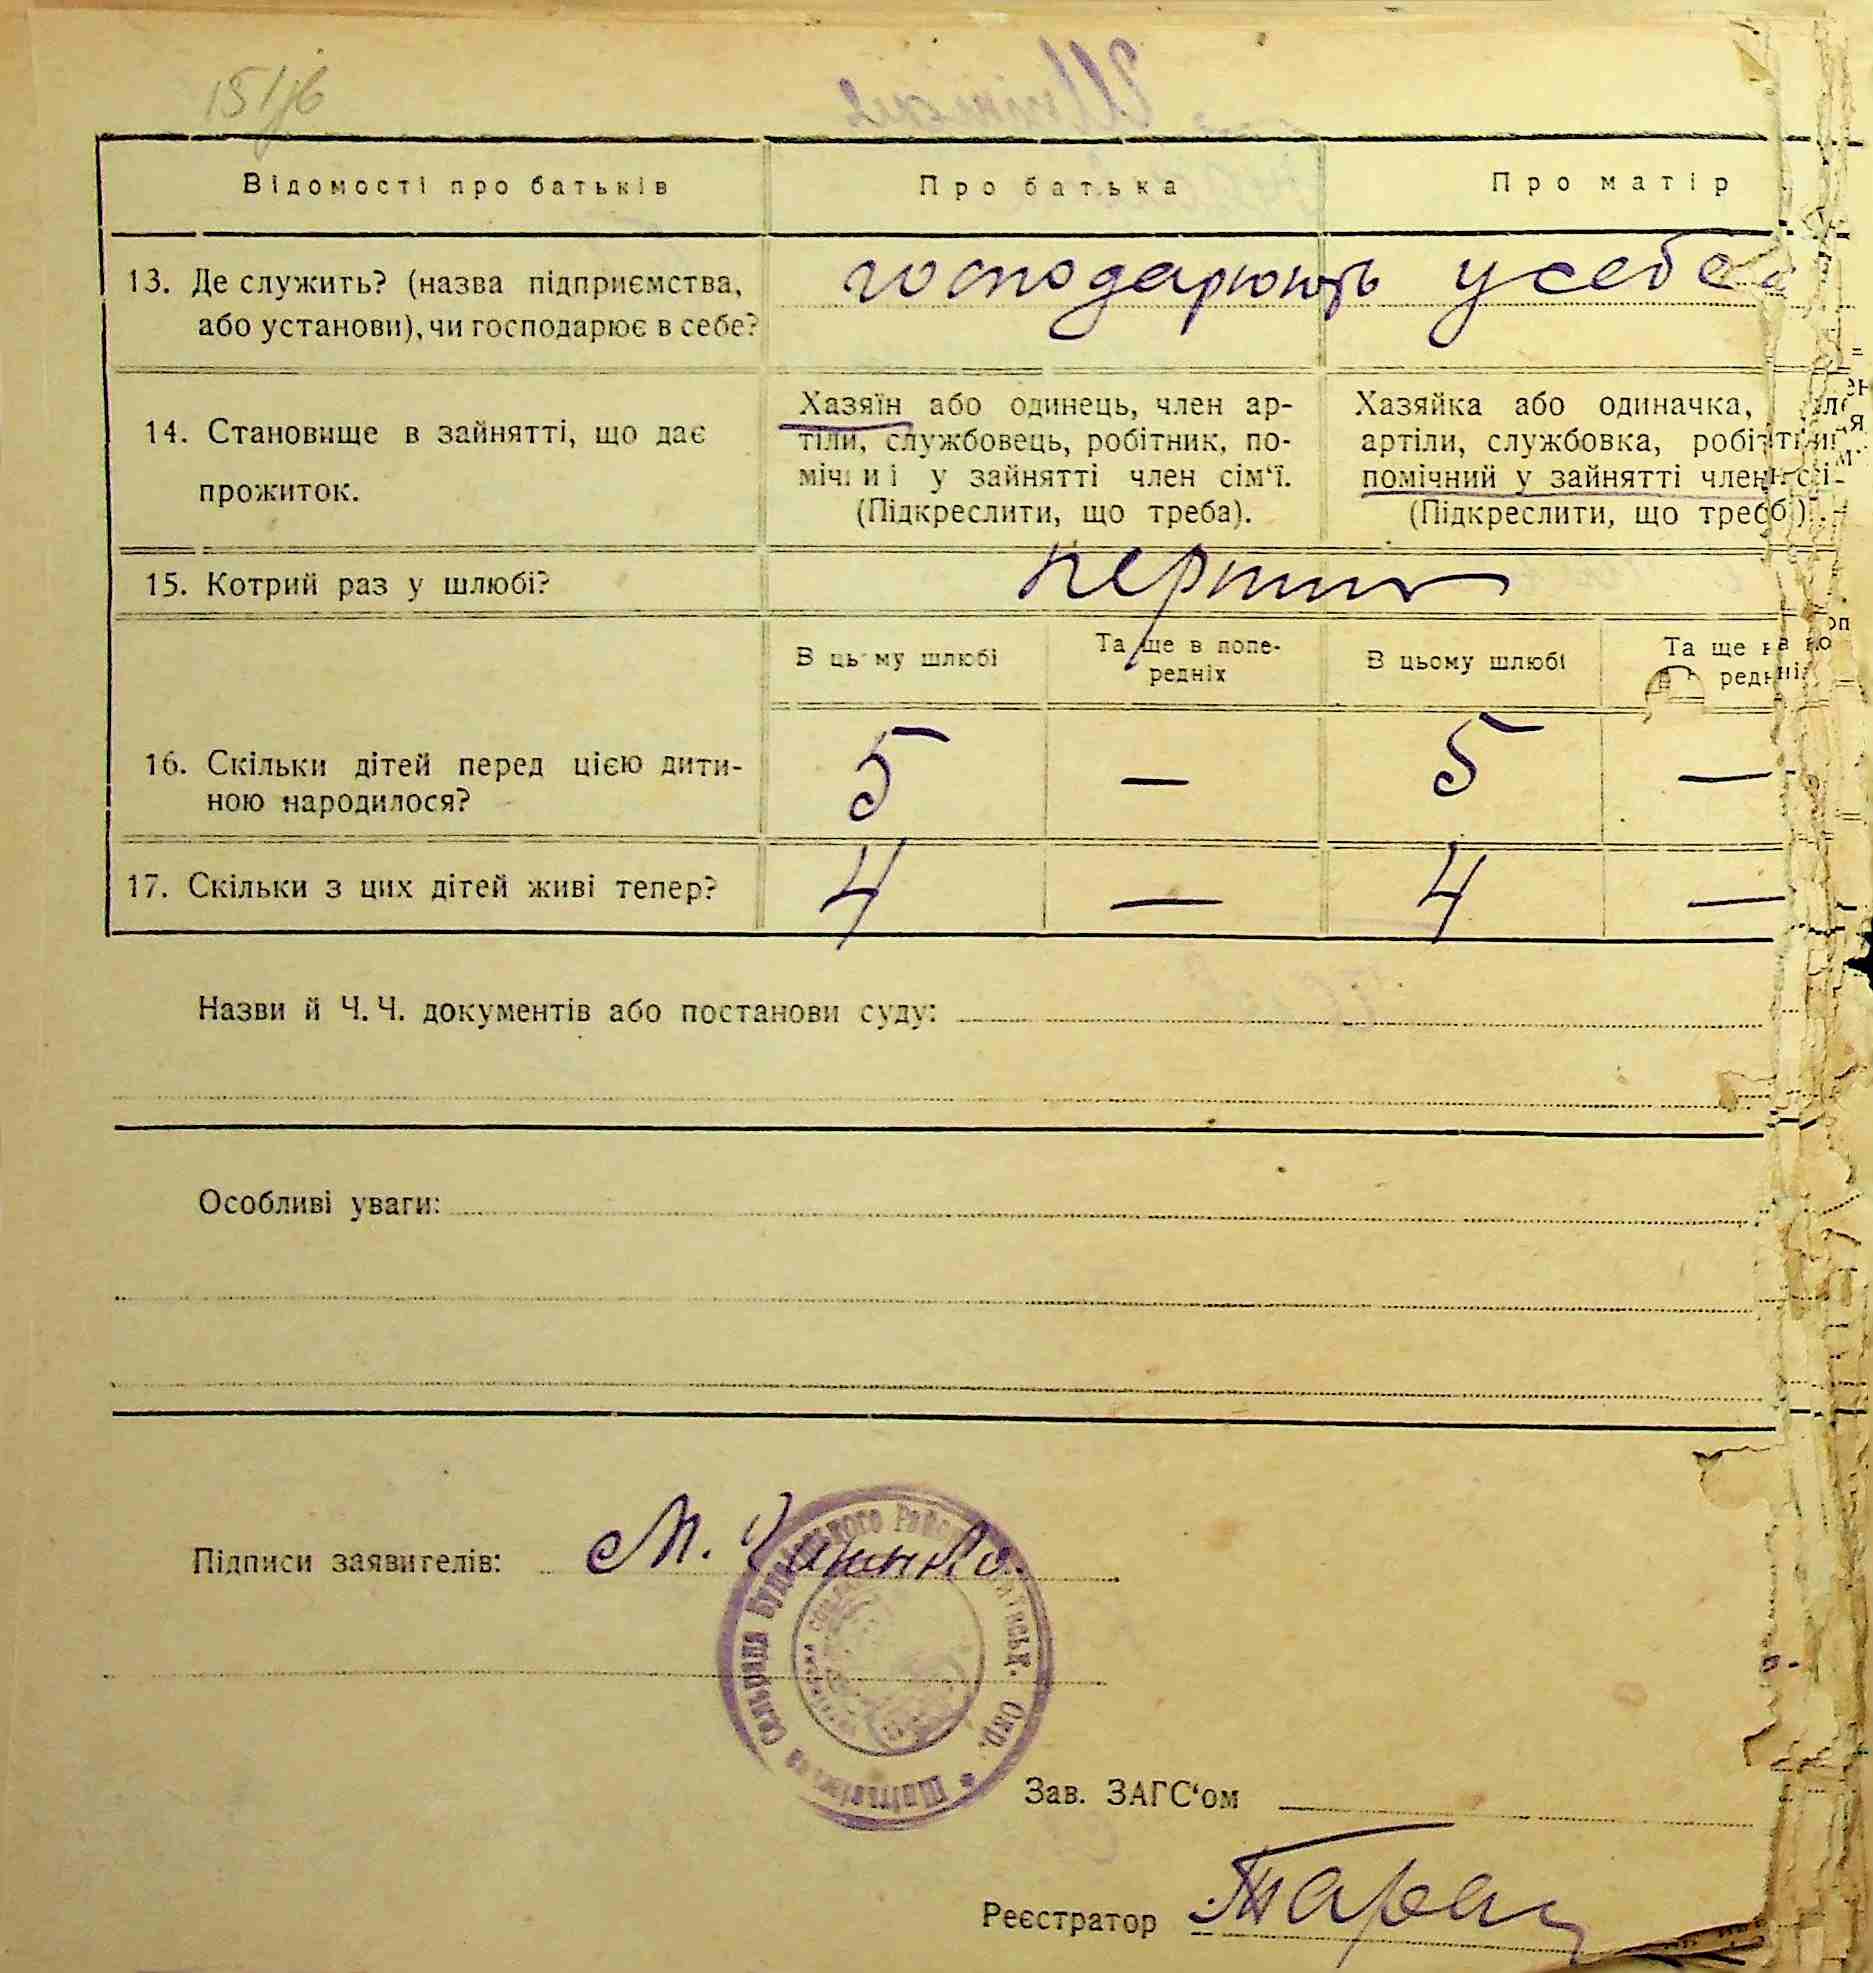 Відомості про батьків
Про батька
Про матір
13. Де служить? (назва підприємства,
або установи), чи господарює в себе?
господарюють у себе
14. Становище в зайнятті, що дає
прожиток.
Хазяїн або одинець, член ар-
тіли, службовець, робітник, по-
у зайнятті член сім‘ї.
(Підкреслити, що треба).
Хазяйка або одиначка,
артіли, службовка,
помічний у зайнятті член
(Підкреслити, що
15. Котрий раз у шлюбі?
перший
В цьму шлюбі
Та ще в попе-
редніх
В цьому шлюбі
Та ще
16. Скільки дітей перед цією дити-
ною народилося?
5 — 5 —
17. Скільки з цих дітей живі тепер?
4 — 4 —
Назви й Ч. Ч. документів або постанови суду:
Особливі уваги:
Підписи заявителів: М.
Сільрада
Окр.
Зав. ЗАГС‘ом
Реєстратор Таран